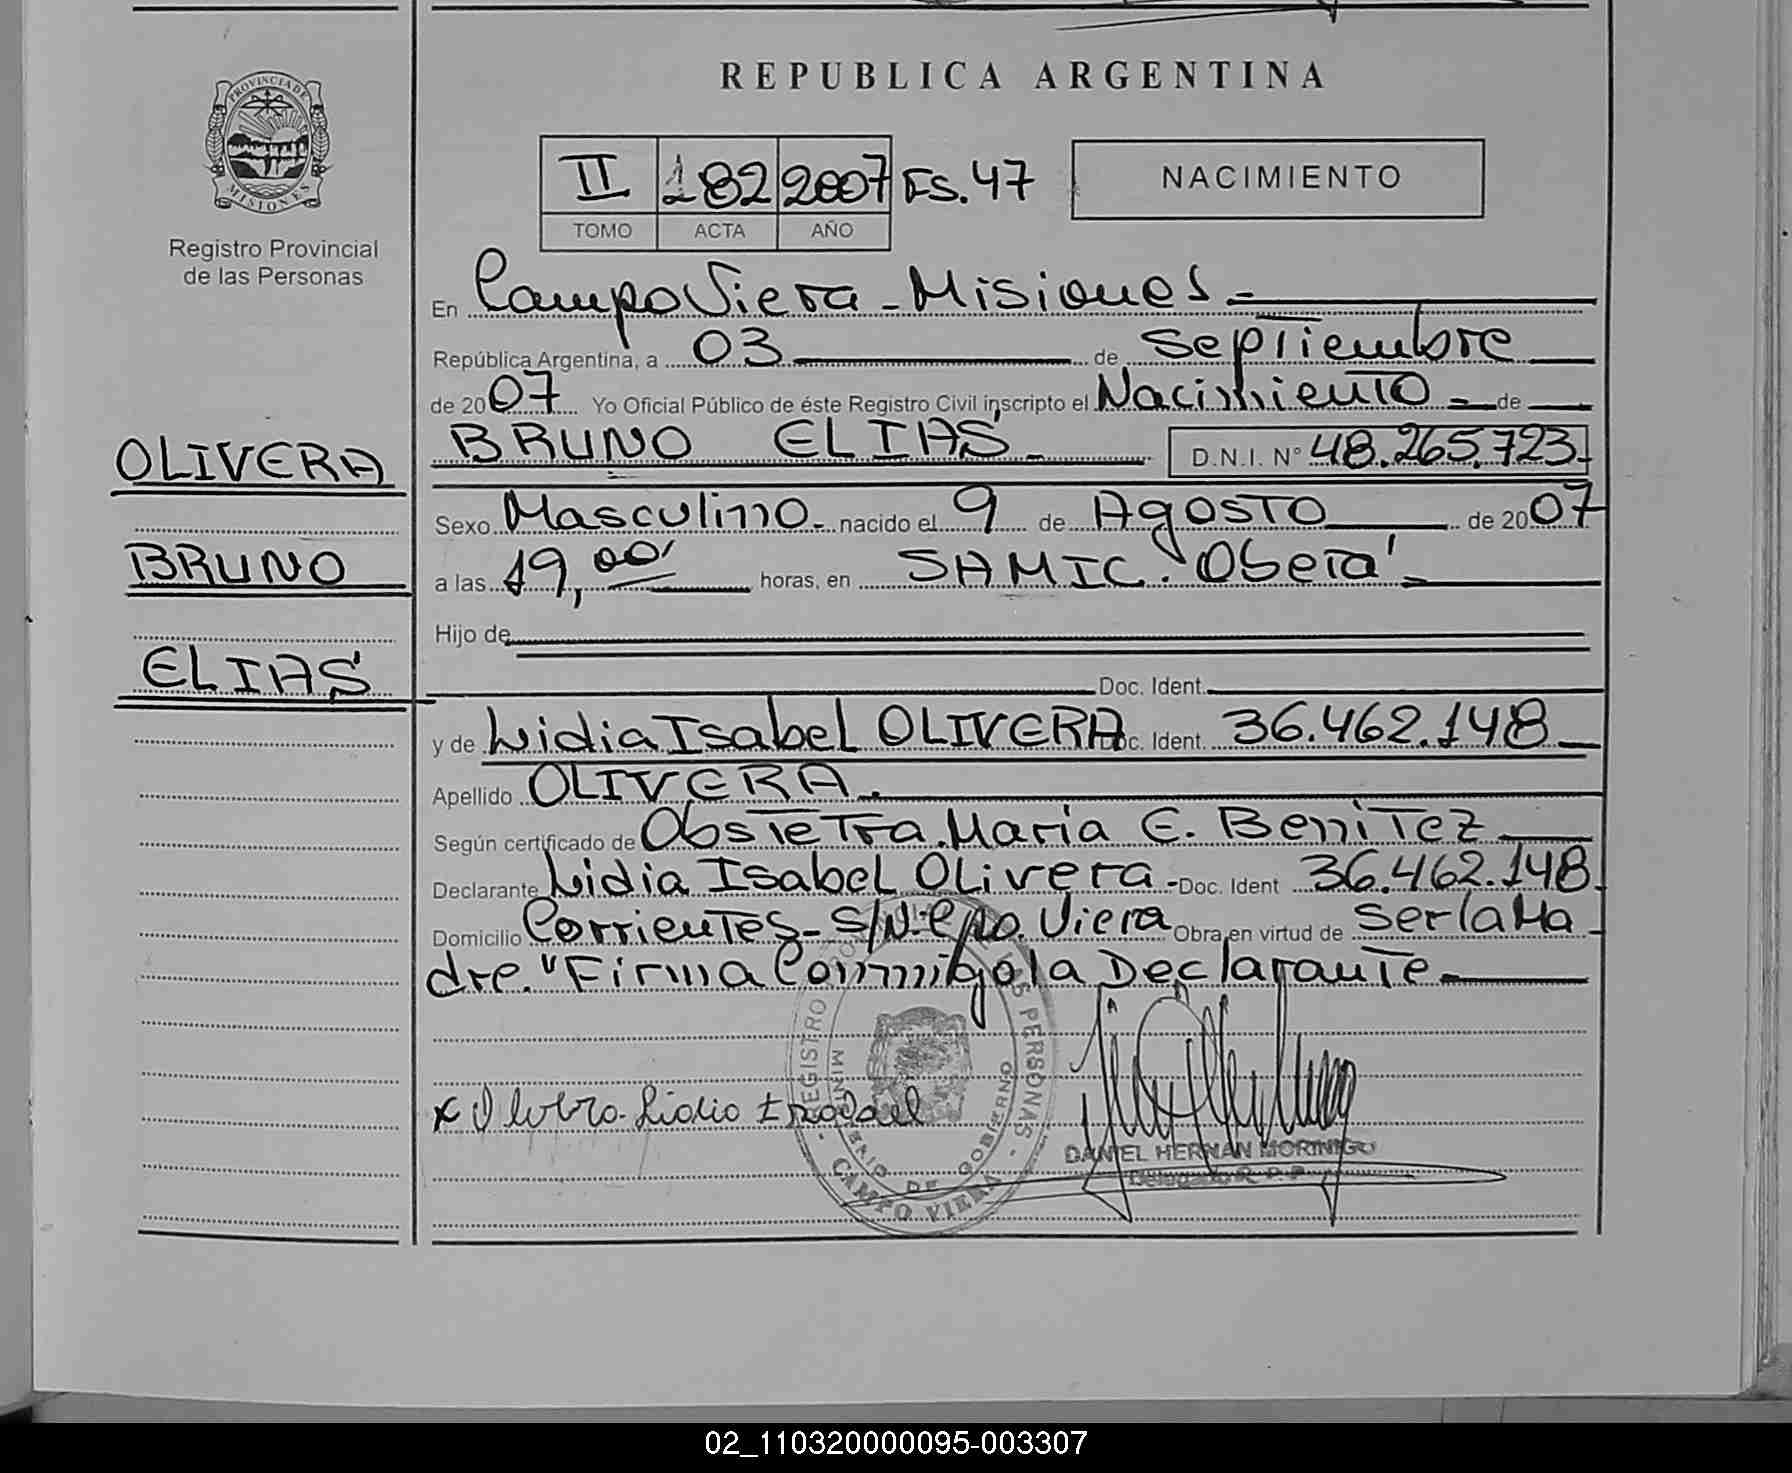 REPUBLICA ARGENTINA
PROVINCIA DE MISIONES
Registro Provincial
de las Personas
II 182 2007 FS. 47
TOMO ACTA AÑO
NACIMIENTO
En Campo Viera - Misiones -
República Argentina, a 03 de Septiembre
de 2007 Yo Oficial Público de éste Registro Civil inscripto el Nacimiento - de
BRUNO ELIAS - D.N.I. N° 48.265.723-
OLIVERA
Sexo Masculino - nacido el 9 de Agosto de 2007
BRUNO
a las 19,00' horas, en SAMIC. Oberá -
Hijo de
ELIAS
Doc. Ident.
y de Lidia Isabel OLIVERA Doc. Ident. 36.462.148
Apellido OLIVERA.
Según certificado de Obstetra. Maria E. Benitez
Declarante Lidia Isabel Olivera - Doc. Ident 36.462.148.
Domicilio Corrientes - S/N - Cpo. Viera Obra en virtud de Ser la Ma
dre. "Firma Conmigo la Declarante
x Olivera Lidia Isabel
REGISTRO PROVINCIAL DE LAS PERSONAS
MINISTERIO DE GOBIERNO
- CAMPO VIERA -
DANIEL HERNAN MORINIGO
Delegado R. P. P.
02_110320000095-003307